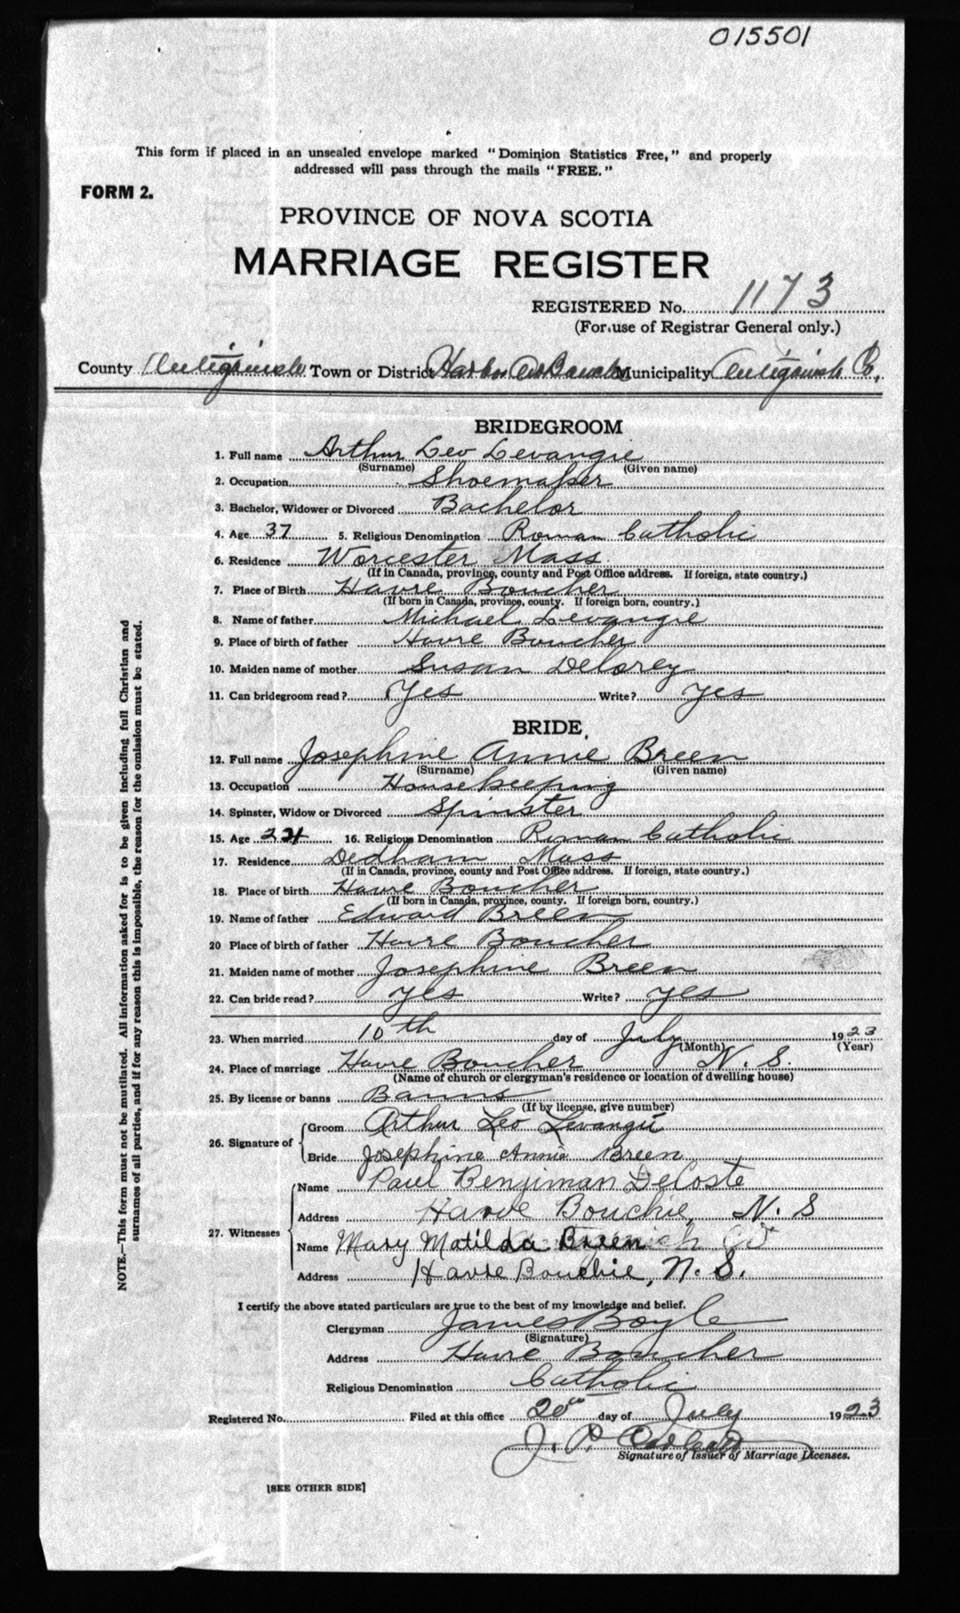 015501
This form if placed in an unsealed envelope marked "Dominion Statistics Free," and properly
addressed will pass through the mails "FREE."
FORM 2.
PROVINCE OF NOVA SCOTIA
MARRIAGE REGISTER
REGISTERED No. 1173
(For use of Registrar General only.)
County Antigonish Town or District Harbor Au Bouche Municipality Antigonish Co.
BRIDEGROOM
1. Full name Arthur Leo Levangie
(Surname) (Given name)
2. Occupation Shoemaker
3. Bachelor, Widower or Divorced Bachelor
4. Age 37 5. Religious Denomination Roman Catholic
6. Residence Worcester Mass
(If in Canada, province, county and Post Office address. If foreign, state country.)
7. Place of Birth Havre Boucher
(If born in Canada, province, county. If foreign born, country.)
8. Name of father Michael Levangie
9. Place of birth of father Havre Boucher
10. Maiden name of mother Susan Delorey
11. Can bridegroom read? Yes Write? yes
BRIDE
12. Full name Josephine Annie Breen
(Surname) (Given name)
13. Occupation Housekeeping
14. Spinster, Widow or Divorced Spinster
15. Age 24 16. Religious Denomination Roman Catholic
17. Residence Dedham Mass
(If in Canada, province, county and Post Office address. If foreign, state country.)
18. Place of birth Havre Boucher
(If born in Canada, province, county. If foreign born, country.)
19. Name of father Edward Breen
20 Place of birth of father Havre Boucher
21. Maiden name of mother Josephine Breen
22. Can bride read? yes Write? yes
23. When married 10th day of July 1923
(Month) (Year)
24. Place of marriage Havre Boucher N. S.
(Name of church or clergyman's residence or location of dwelling house)
25. By license or banns Banns
(If by license, give number)
26. Signature of Groom Arthur Leo Levangie
Bride Josephine Annie Breen
27. Witnesses Name Paul Benjiman DeCoste
Address Havre Bouchie N. S
Name Mary Matilda Breen
Address Havre Bouchie, N. S.
I certify the above stated particulars are true to the best of my knowledge and belief.
Clergyman James Boyle
(Signature)
Address Havre Boucher
Religious Denomination Catholic
Registered No. Filed at this office 20th day of July 1923
J. P.
Signature of Issuer of Marriage Licenses.
[SEE OTHER SIDE]
NOTE.—This form must not be mutilated. All information asked for is to be given including full Christian and
surnames of all parties, and if for any reason this is impossible, the reason for the omission must be stated.